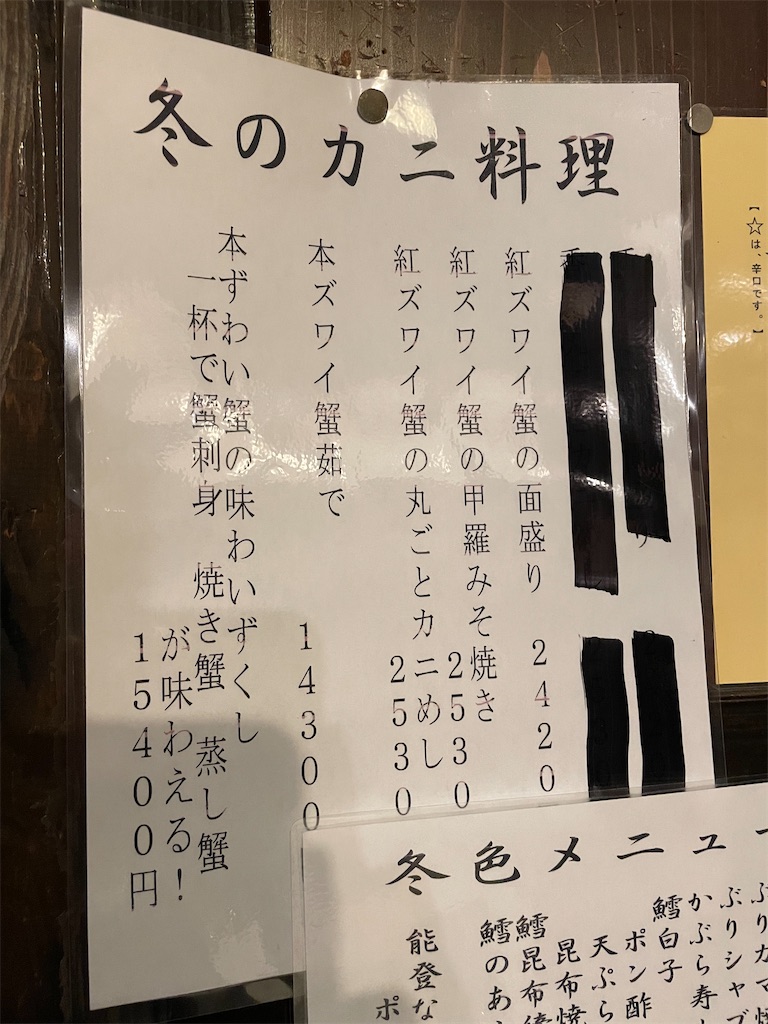 冬のカニ料理
紅ズワイ蟹の面盛り 2420
紅ズワイ蟹の甲羅みそ焼き 2530
紅ズワイ蟹の丸ごとカニめし 2530
本ズワイ蟹茹で 14300
本ずわい蟹の味わいずくし
一杯で蟹刺身 焼き蟹 蒸し蟹
が味わえる!
15400円
【☆は、辛口です。】
冬色メニュー
ぶりカマ焼
ぶりシャブ
かぶら寿
鱈白子
ポン酢
天ぷら
昆布焼
鱈昆布
鱈のあ
能登な
ポ